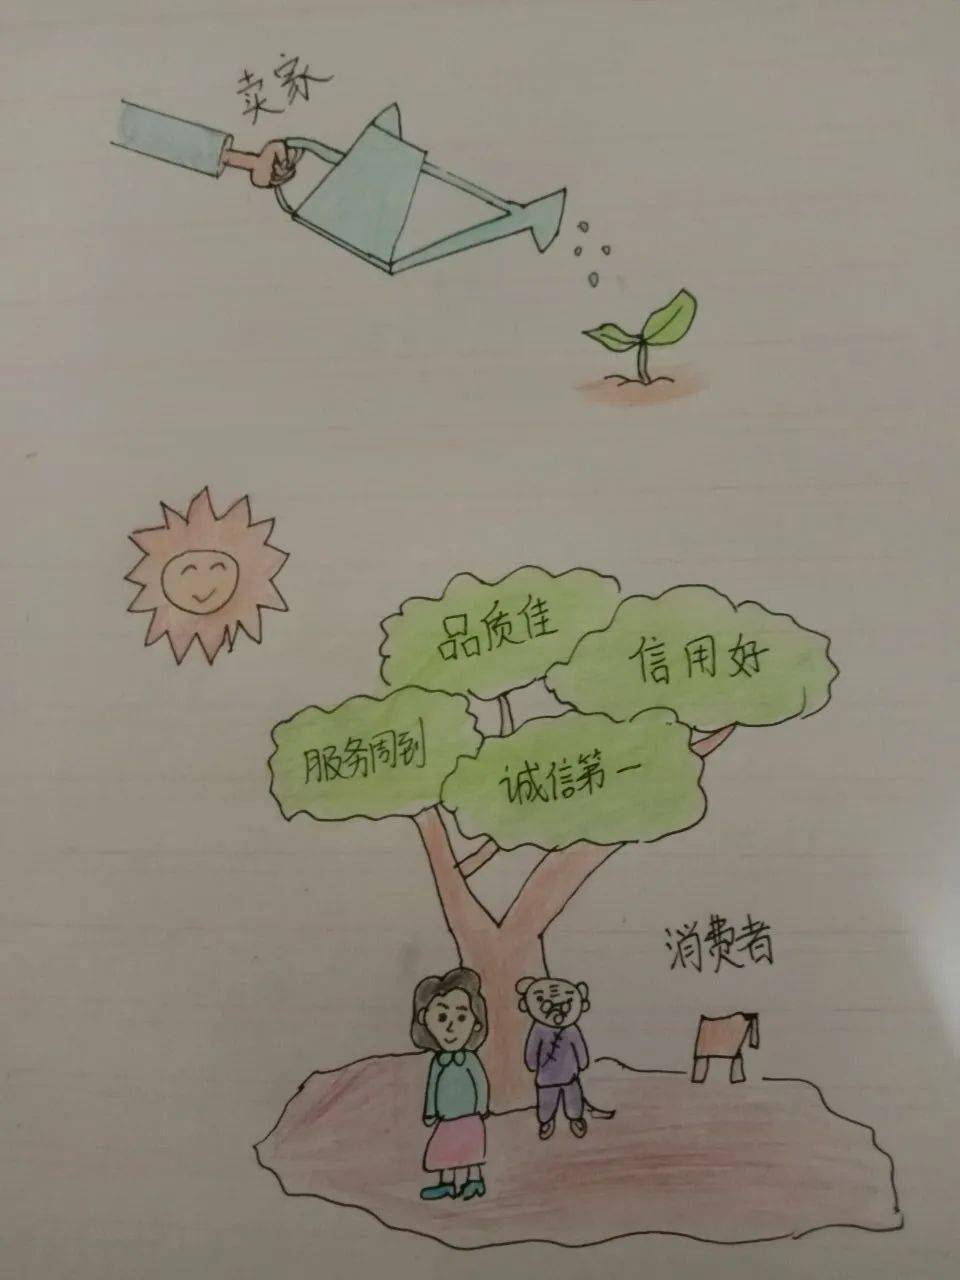 卖家
品质佳
信用好
服务周到
诚信第一
消费者